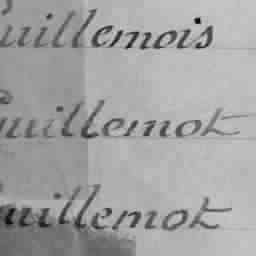 Guillemois
Guillemot
Guillemot